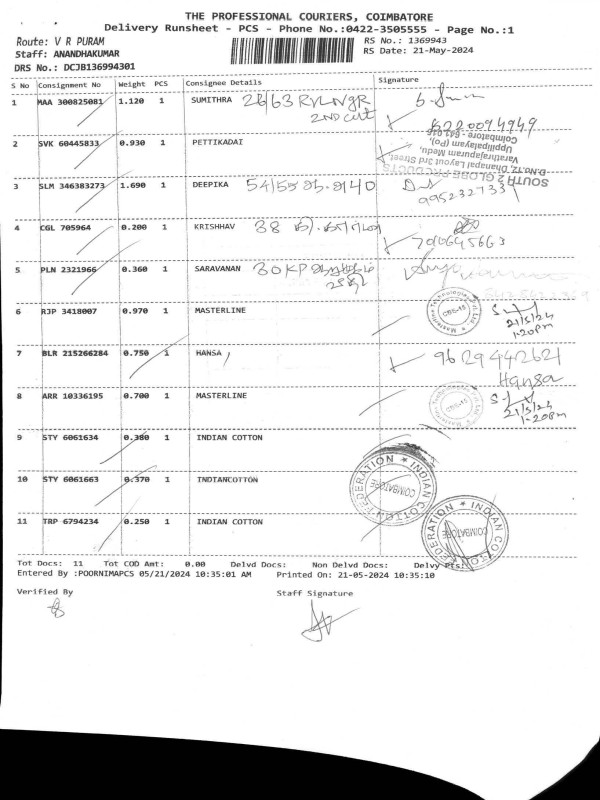 THE PROFESSIONAL COURIERS, COIMBATORE
Delivery Runsheet - PCS - Phone No.:0422-3505555 - Page No.:1
Route: V R PURAM RS No.: 1369943
Staff: ANANDHAKUMAR RS Date: 21-May-2024
DRS No.: DCJB136994301
S No Consignment No Weight PCS Consignee Details Signature
1 MAA 300825081 1.120 1 SUMITHRA 26/63
2nd cut
2 SVK 60445833 0.930 1 PETTIKADAI
SOUTH 2 GLOBE PRODUCTS
D.No.12, Dhanapal Layout 3rd Street,
Varatharajapuram Medu,
Uppilipalayam (Po),
Coimbatore - 641 015
3 SLM 346383273 1.690 1 DEEPIKA
4 CGL 705964 0.200 1 KRISHHAV 38
5 PLN 2321966 0.360 1 SARAVANAN 30 KP
6 RJP 3418007 0.970 1 MASTERLINE
CBE-15
21/5/24
1:20pm
7 BLR 215266284 0.750 1 HANSA 9629442621
Hansa
8 ARR 10336195 0.700 1 MASTERLINE
CBE-15
21/5/24
1:20pm
9 STY 6061634 0.380 1 INDIAN COTTON
10 STY 6061663 0.370 1 INDIANCOTTON
INDIAN COTTON FEDERATION
COIMBATORE
11 TRP 6794234 0.250 1 INDIAN COTTON
INDIAN COTTON FEDERATION
COIMBATORE
Tot Docs: 11 Tot COD Amt: 0.00 Delvd Docs: Non Delvd Docs: Delvy Pts:
Entered By :POORNIMAPCS 05/21/2024 10:35:01 AM Printed On: 21-05-2024 10:35:10
Verified By Staff Signature